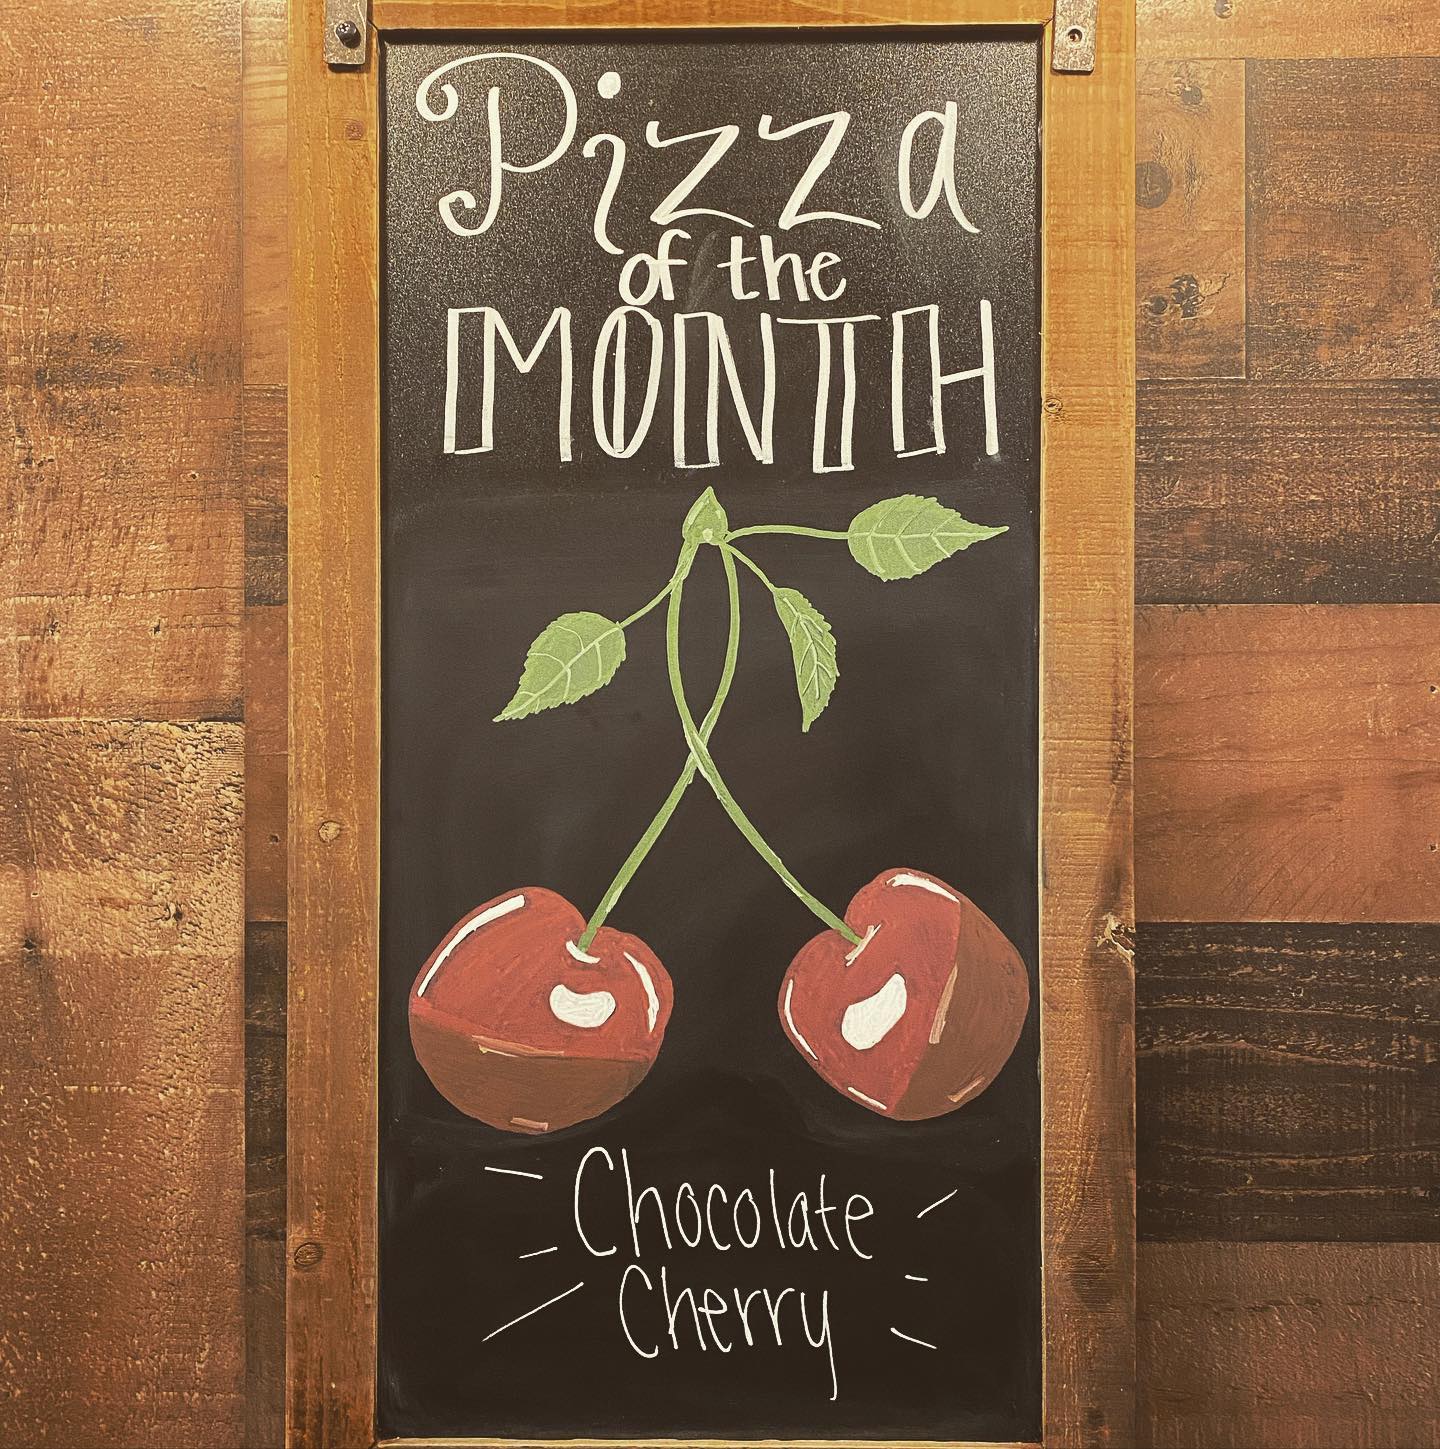 Pizza
of the
MONTH
Chocolate
Cherry